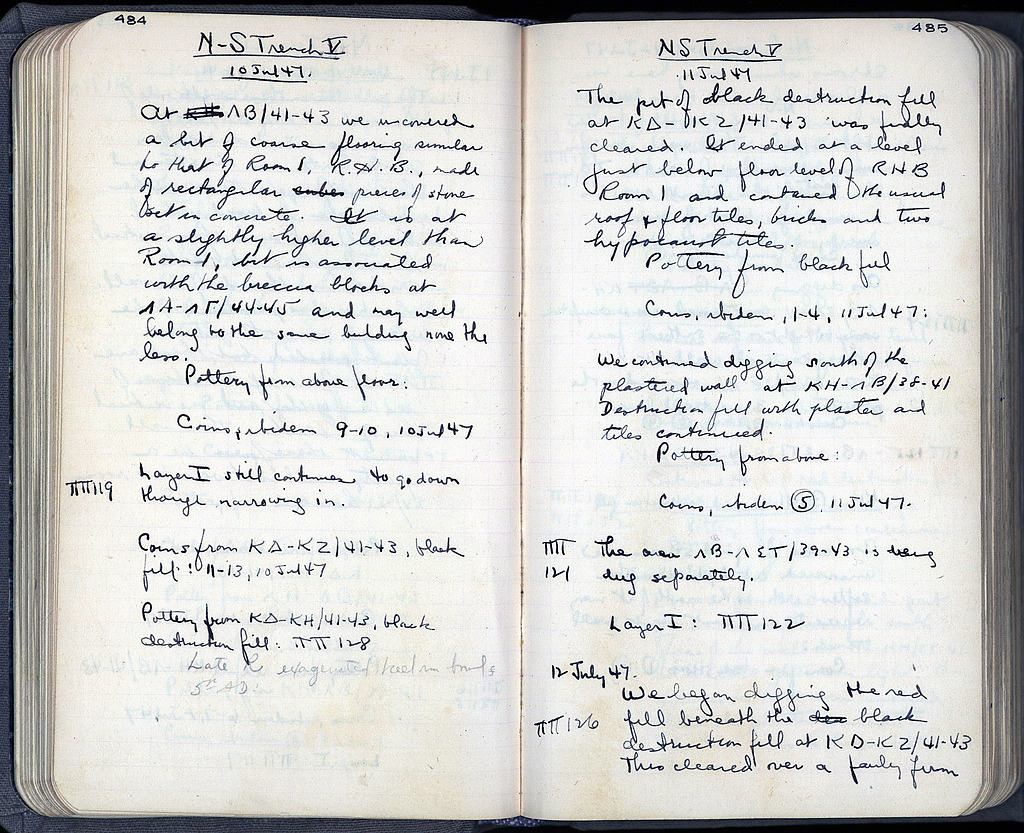 484
N-S Trench V
10 Jul 47.
At ΛB/41-43 we uncovered
a bit of coarse flooring similar
to that of Room 1, R.H.B., made
of rectangular cubes pieces of stone
set in concrete. It is at
a slightly higher level than
Room 1, but is associated
with the breccia blocks at
ΛA-ΛΓ/44-45 and may well
belong to the same building none the
less.
Pottery from above floor:
Coins, ibidem 9-10, 10 Jul 47
Layer I still continues to go down
ΠΠ119
though narrowing in.
Coins from KΔ-KZ/41-43, black
fill: 11-13, 10 Jul 47
Pottery from KΔ-KH/41-43, black
destruction fill: ΠΠ 128
Late R. exaggerated keel rim bowls
5th AD.
485
NS Trench V
11 Jul 47
The pit of black destruction fill
at KΔ-KZ/41-43 was finally
cleared. It ended at a level
just below floor level of RHB
Room 1 and contained the usual
roof & floor tiles, bricks and two
hypocaust tiles.
Pottery from black fill
Coins, ibidem, 1-4, 11 Jul 47:
We continued digging south of the
plastered wall at KH-ΛB/38-41
Destruction fill with plaster and
tiles continued.
Pottery from above:
Coins, ibidem 5, 11 Jul 47.
ΠΠ 121
The area ΛB-ΛΣT/39-43 is being
dug separately.
Layer I: ΠΠ 122
12 July 47.
We began digging the red
ΠΠ126
fill beneath the black
destruction fill at KD-KZ/41-43
This cleared over a fairly firm